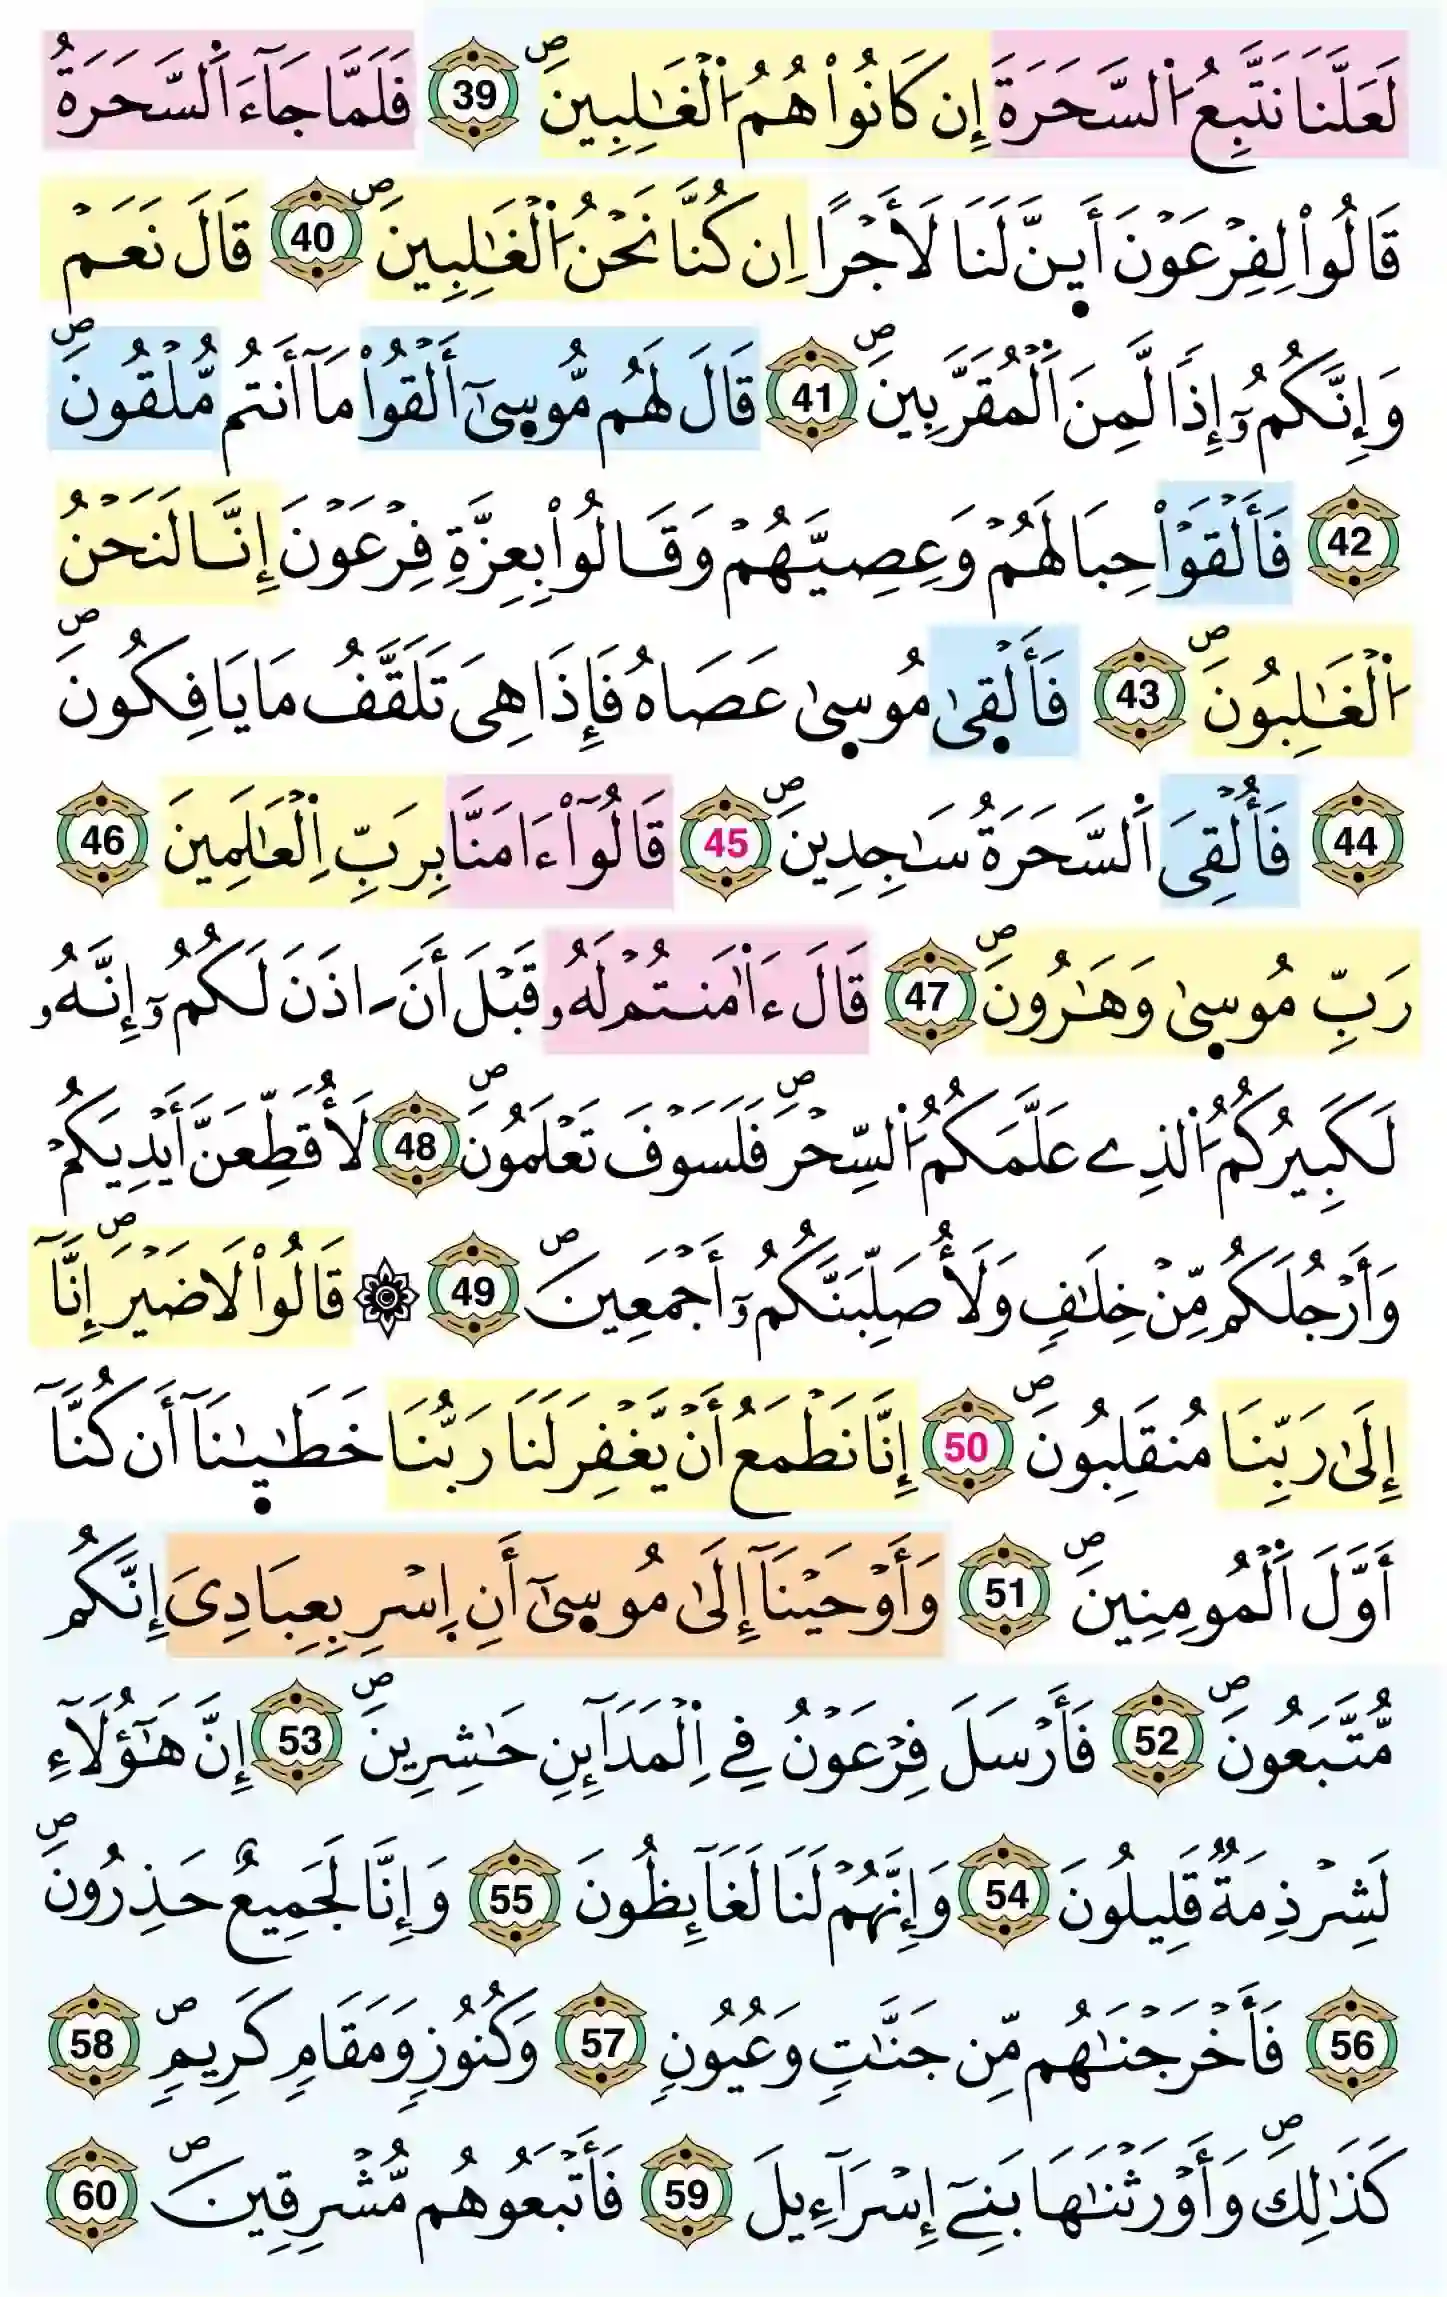 لَعَلَّنَا نَتَّبِعُ اُ۬لسَّحَرَةَ إِن كَانُواْ هُمُ اُ۬لْغَٰلِبِينَۖ 39 فَلَمَّا جَآءَ اَ۬لسَّحَرَةُ
قَالُواْ لِفِرْعَوْنَ أَى۪نَّ لَنَا لَأَجْراً اِن كُنَّا نَحْنُ اُ۬لْغَٰلِبِينَۖ 40 قَالَ نَعَمْ
وَإِنَّكُمُۥٓ إِذاٗ لَّمِنَ اَ۬لْمُقَرَّبِينَۖ 41 قَالَ لَهُم مُّوس۪ىٰٓ أَلْقُواْ مَآ أَنتُم مُّلْقُونَۖ
42 فَأَلْقَوْاْ حِبَالَهُمْ وَعِصِيَّهُمْ وَقَالُواْ بِعِزَّةِ فِرْعَوْنَ إِنَّا لَنَحْنُ
اُ۬لْغَٰلِبُونَۖ 43 فَأَلْق۪ىٰ مُوس۪ىٰ عَصَاهُ فَإِذَا هِىَ تَلَقَّفُ مَا يَافِكُونَۖ
44 فَأُلْقِىَ اَ۬لسَّحَرَةُ سَٰجِدِينَۖ 45 قَالُوٓاْ ءَامَنَّا بِرَبِّ اِ۬لْعَٰلَمِينَ 46
رَبِّ مُوس۪ىٰ وَهَٰرُونَۖ 47 قَالَ ءَاَ۬مَنتُمْ لَهُۥ قَبْلَ أَنَ اٰذَنَ لَكُمُۥٓ إِنَّهُۥ
لَكَبِيرُكُمُ اُ۬لذِے عَلَّمَكُمُ اُ۬لسِّحْرَۖ فَلَسَوْفَ تَعْلَمُونَۖ 48 لَأُقَطِّعَنَّ أَيْدِيَكُمْ
وَأَرْجُلَكُم مِّنْ خِلَٰفٖ وَلَأُصَلِّبَنَّكُمُۥٓ أَجْمَعِينَۖ 49 ۞ قَالُواْ لَا ضَيْرَۖ إِنَّآ
إِلَىٰ رَبِّنَا مُنقَلِبُونَۖ 50 إِنَّا نَطْمَعُ أَنْ يَّغْفِرَ لَنَا رَبُّنَا خَطَٰيٰ۪نَآ أَن كُنَّآ
أَوَّلَ اَ۬لْمُومِنِينَۖ 51 وَأَوْحَيْنَآ إِلَىٰ مُوس۪ىٰٓ أَنِ اِ۪سْرِ بِعِبَادِىَ إِنَّكُم
مُّتَّبَعُونَۖ 52 فَأَرْسَلَ فِرْعَوْنُ فِے اِ۬لْمَدَآئِنِ حَٰشِرِينَۖ 53 إِنَّ هَٰٓؤُلَآءِ
لَشِرْذِمَةٞ قَلِيلُونَ 54 وَإِنَّهُمْ لَنَا لَغَآئِظُونَ 55 وَإِنَّا لَجَمِيعٌ حَذِرُونَۖ
56 فَأَخْرَجْنَٰهُم مِّن جَنَّٰتٖ وَعُيُونٖ 57 وَكُنُوزٖ وَمَقَامٖ كَرِيمٖۖ 58
كَذَٰلِكَۖ وَأَوْرَثْنَٰهَا بَنِےٓ إِسْرَآءِيلَ 59 فَأَتْبَعُوهُم مُّشْرِقِينَۖ 60